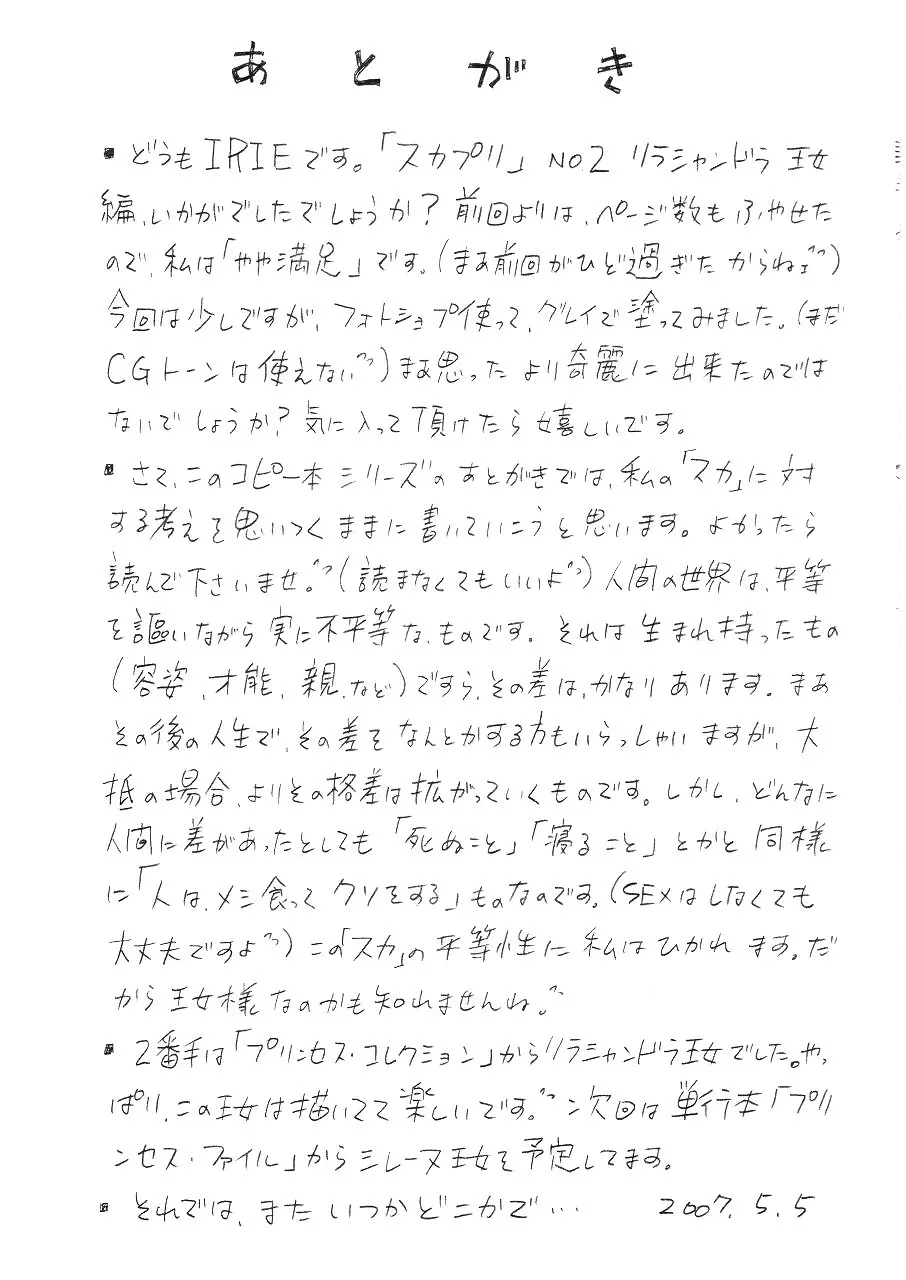 あとがき
▪どうもIRIEです。「スカプリ」NO.2 リラシャンドラ王女
編、いかがでしたでしょうか？前回よりは、ページ数もふやせた
ので、私は「やや満足」です。(まあ前回がひど過ぎたからね^^;)
今回は少しですが、フォトショップ使って、グレイで塗ってみました。(まだ
CGトーンは使えない^^;)まあ思ったより奇麗に出来たのでは
ないでしょうか？気に入って頂けたら嬉しいです。
▪さて、このコピー本シリーズのあとがきでは、私の「スカ」に対
する考えを思いつくままに書いていこうと思います。よかったら
読んで下さいませ。^^;(読まなくてもいいよ^^;)人間の世界は、平等
を謳いながら実に不平等な、ものです。それは生まれ持ったもの
(容姿、才能、親、など)ですら、その差は、かなりあります。まあ
その後の人生で、その差をなんとかする方もいらっしゃいますが、大
抵の場合、よりその格差は拡がっていくものです。しかし、どんなに
人間に差があったとしても「死ぬこと」「寝ること」とかと同様
に「人は、メシ食ってクソをする」ものなのです。(SEXはしなくても
大丈夫ですよ^^;)この「スカ」の平等性に私はひかれます。だ
から王女様なのかも知れませんね。^^
▪2番手は「プリンセス・コレクション」からリラシャンドラ王女でした。やっ
ぱり、この王女は描いてて楽しいです。^^次回は単行本「プリ
ンセス・ファイル」からミレーヌ王女を予定してます。
▪それでは、またいつかどこかで… 2007.5.5